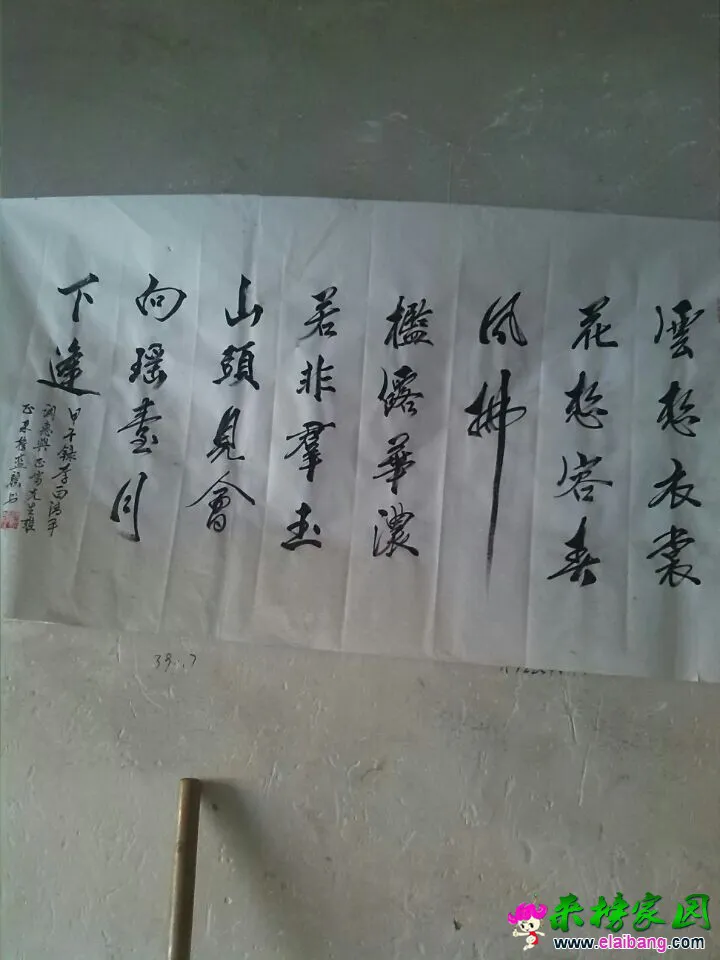 雲想衣裳
花想容春
風拂
檻露華濃
若非羣玉
山頭見會
向瑶臺月
下逢
甲午錄李白清平
調
39..7
来榜家园
www.elaibang.com